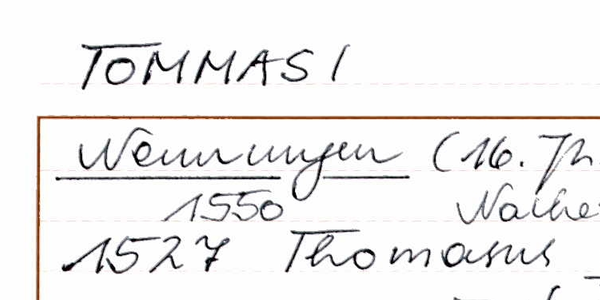 TOMMASI
Nennungen (16. Jh.
1550
1527 Thomasus